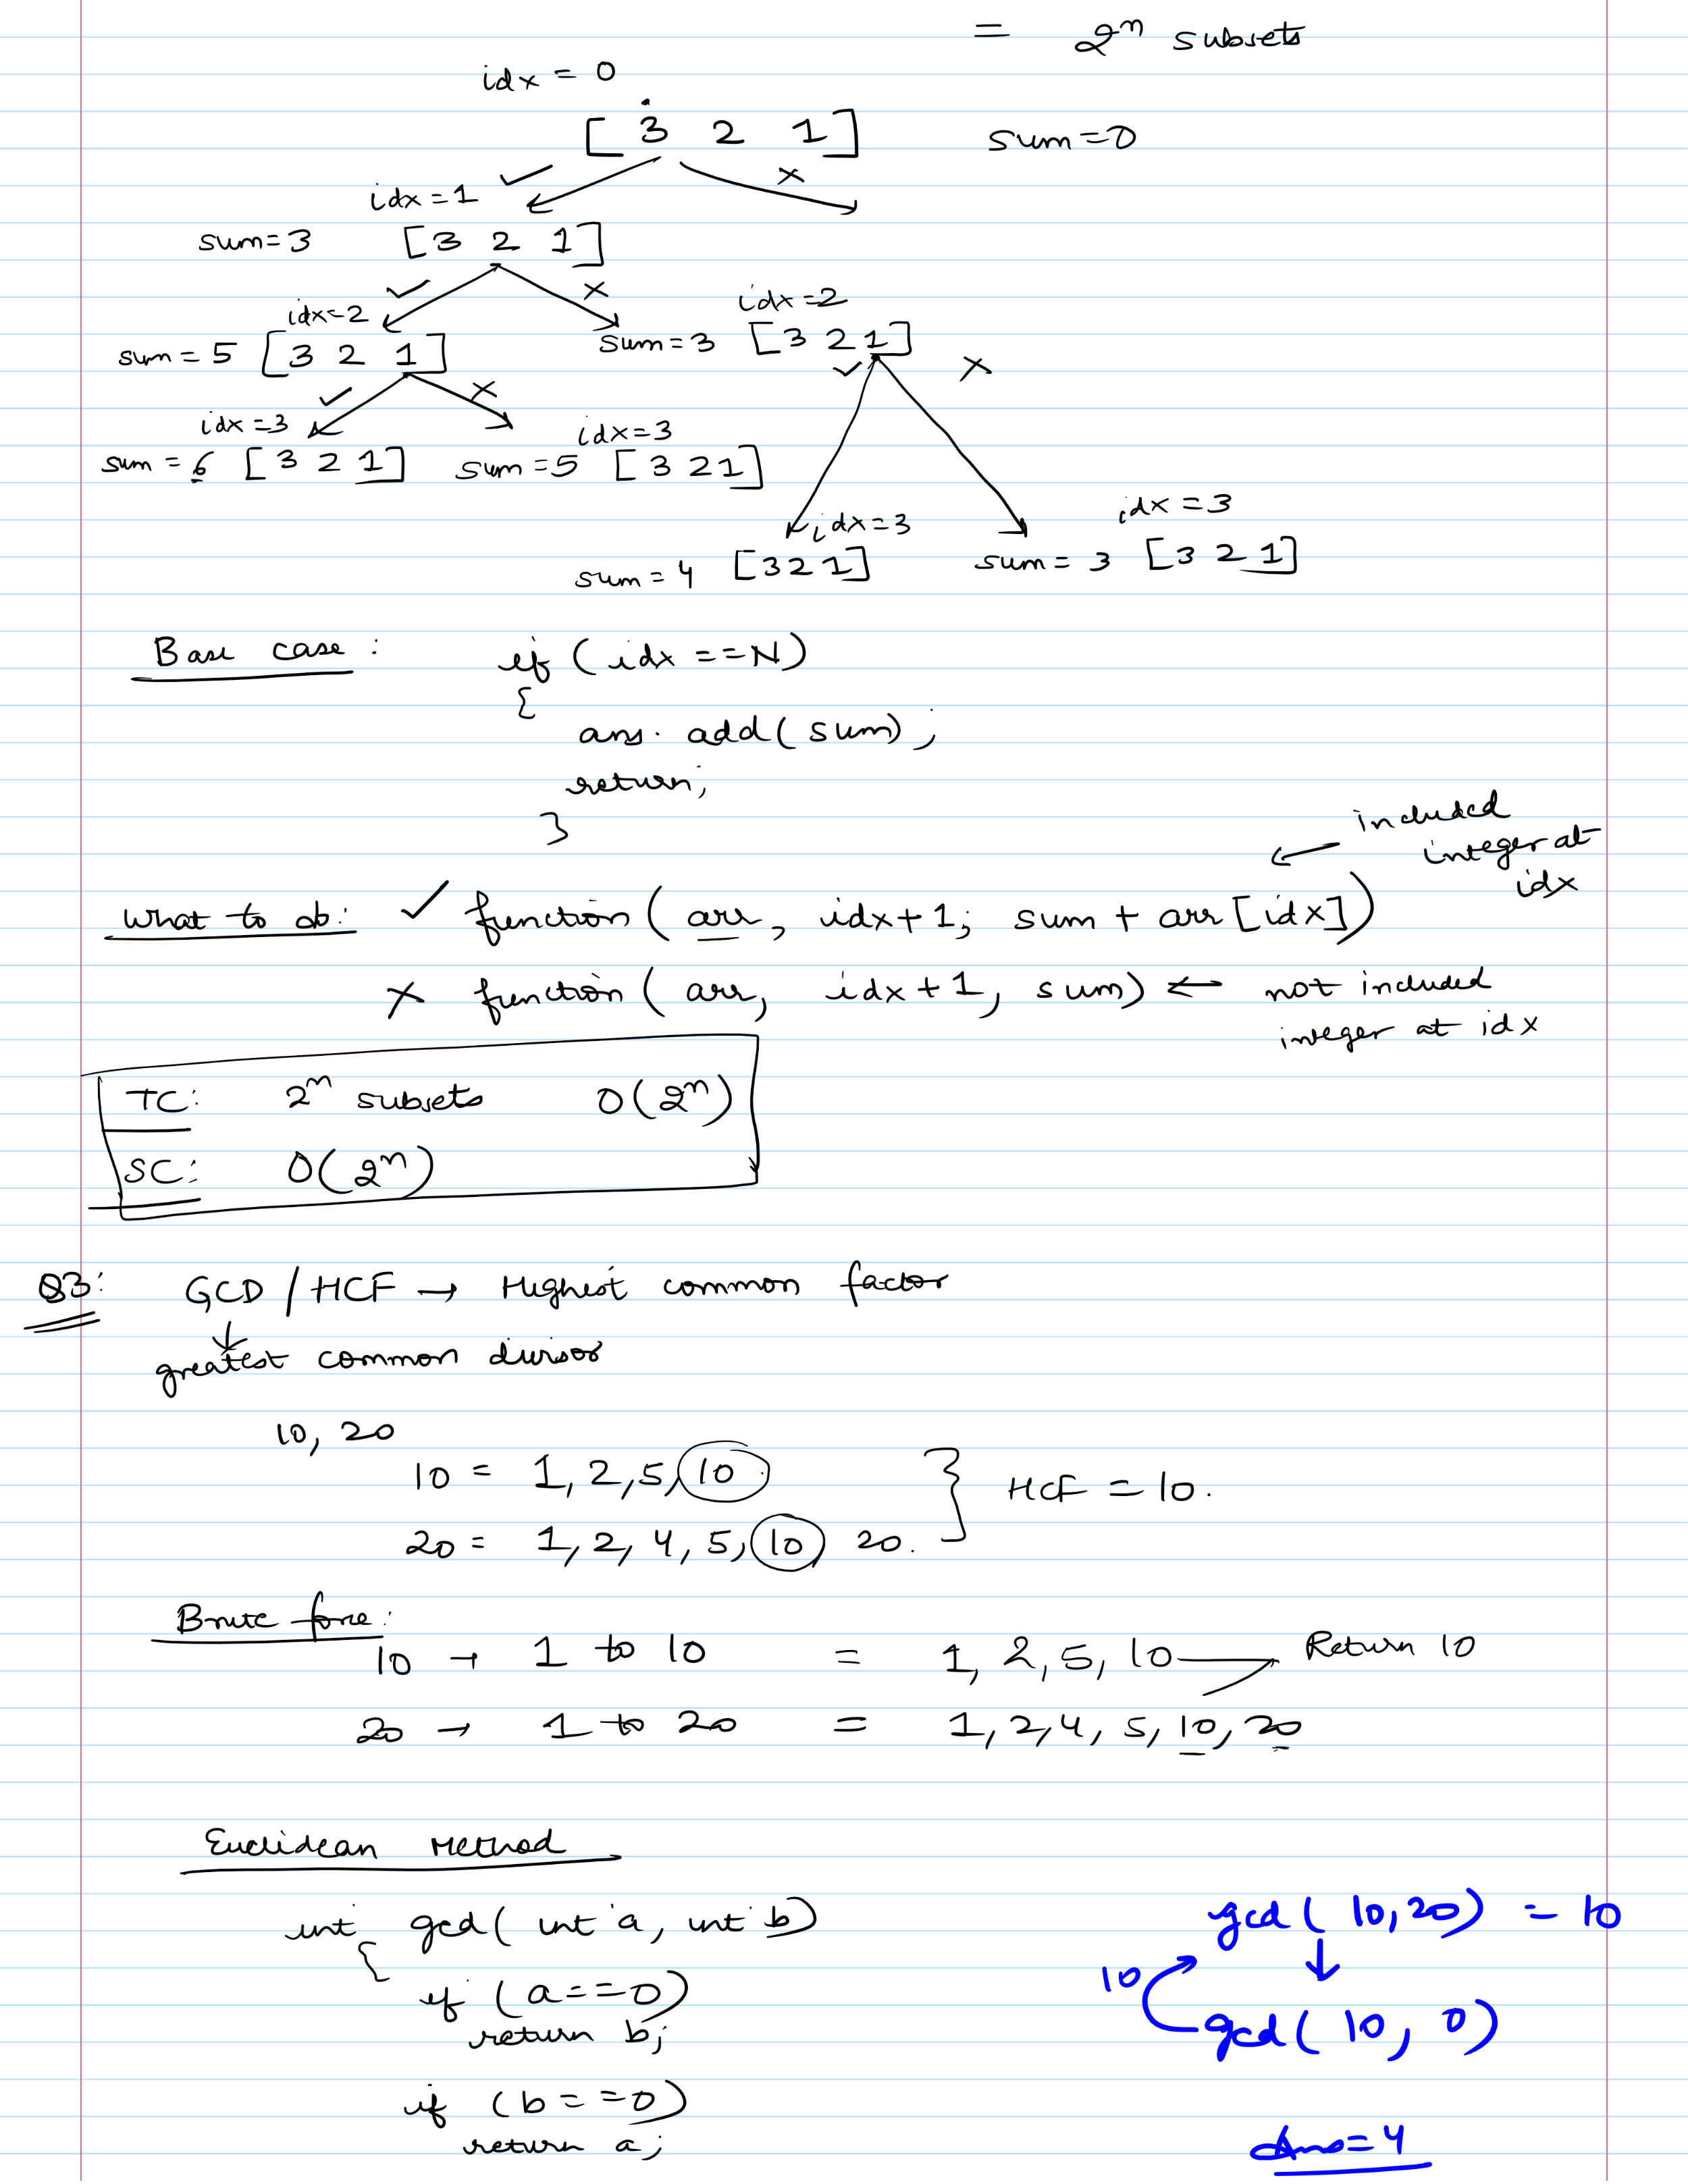 = 2^n subsets
idx = 0
[ 3 2 1 ] sum=0
✓ x
idx=1
sum=3 [3 2 1]
✓ x
idx=2 idx=2
sum = 5 [3 2 1] sum=3 [3 2 1]
✓ x ✓ x
idx=3 idx=3
sum = 6 [3 2 1] sum=5 [3 2 1]
idx=3 idx=3
sum = 4 [3 2 1] sum = 3 [3 2 1]
Base case : if (idx ==N)
{
ans. add(sum);
return;
}
← included
integer at
idx
what to do: ✓ function( arr, idx+1; sum + arr[idx])
x function( arr, idx+1, sum) ← not included
integer at idx
TC: 2^n subsets O(2^n)
SC: O(2^n)
Q3: GCD / HCF → Highest common factor
↓
greatest common divisor
10, 20
10 = 1, 2, 5, 10
20 = 1, 2, 4, 5, 10, 20.
} HCF = 10.
Brute force:
10 → 1 to 10 = 1, 2, 5, 10 → Return 10
20 → 1 to 20 = 1, 2, 4, 5, 10, 20
Euclidean Method
int gcd( int a, int b)
{
if (a==0)
return b;
if (b==0)
return a;
gcd( 10,20) = 10
↓
10
gcd( 10, 0)
Ans=4